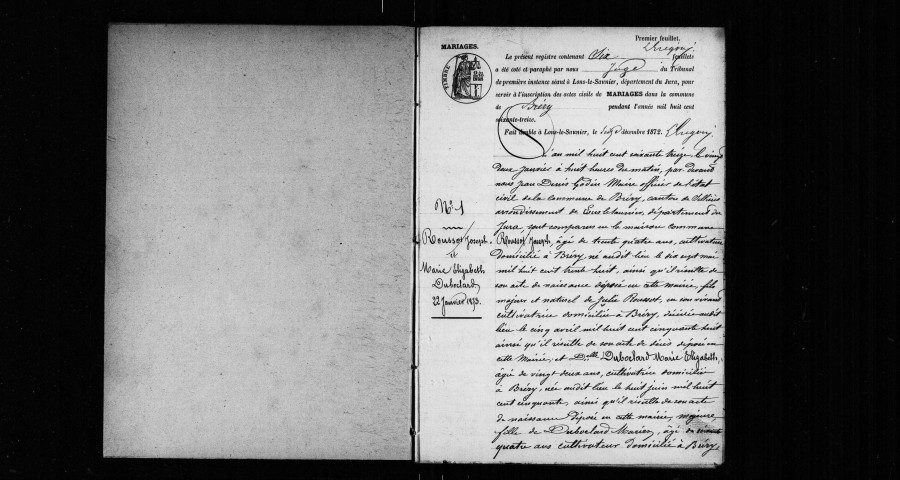 Premier feuillet.
MARIAGES.
Le présent registre contenant Six feuillets
a été coté et paraphé par nous Juge du Tribunal
de première instance séant à Lons-le-Saunier, département du Jura, pour
servir à l'inscription des actes civils de MARIAGES dans la commune
de Bréry pendant l'année mil huit cent
soixante-treize.
Fait double à Lons-le-Saunier, le décembre 1872.
TIMBRE
L'an mil huit cent soixante treize le vingt
deux janvier à huit heures du matin, par devant
nous Jean Denis Godin Maire officier de l'état
civil de la commune de Bréry, canton de Sellières
arrondissement de Lons le Saunier, département du
Jura, sont comparus en la maison commune
N° 1
Roussot Joseph
et
Marie Elizabeth
Duboclard
22 Janvier 1873.
Roussot Joseph, âgé de trente quatre ans, cultivateur
domicilié à Bréry né audit lieu le dix sept mai
mil huit cent trente huit, ainsi qu'il résulte de
son acte de naissance déposé en cette mairie, fils
majeur et naturel de Julie Roussot, en son vivant
cultivatrice domiciliée à Bréry, décédée audit
lieu le cinq avril mil huit cent cinquante huit
ainsi qu'il résulte de son acte de décès déposé en
cette Mairie; et Delle Duboclard Marie Elizabeth,
âgée de vingt deux ans, cultivatrice domiciliée
à Bréry, née audit lieu le huit juin mil huit
cent cinquante, ainsi qu'il résulte de son acte
de naissance déposé en cette mairie, majeure,
fille de Duboclard âgé de soixante
quatre ans cultivateur domicilié à Bréry